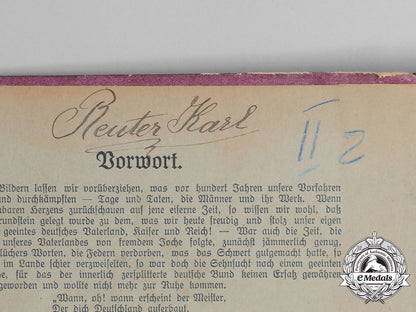 Reuter Karl
II 2
Vorwort.
Bildern lassen wir vorüberziehen, was vor hundert Jahren unsere Vorfahren
und durchkämpften — Tage und Taten, die Männer und ihr Werk. Wenn
baren Herzens zurückschauen auf jene eiserne Zeit, so wissen wir wohl, daß
rundstein gelegt wurde zu dem, was wir heute freudig und stolz unser eigen
geeintes deutsches Vaterland, Kaiser und Reich! — War auch die Zeit, die
unseres Vaterlandes von fremdem Joche folgte, zunächst jämmerlich genug,
lichers Worten, die Federn verdorben, was das Schwert gutgemacht hatte, so
im Lande schier verzweifelten, so war doch die Sehnsucht nach einem geeinten
de, für das der innerlich zersplitterte deutsche Bund keinen Ersatz gewähren
geworden und wollte nicht mehr zur Ruhe kommen.
„Wann, oh! wann erscheint der Meister,
Der dich Deutschland auferbaut.
eMedals